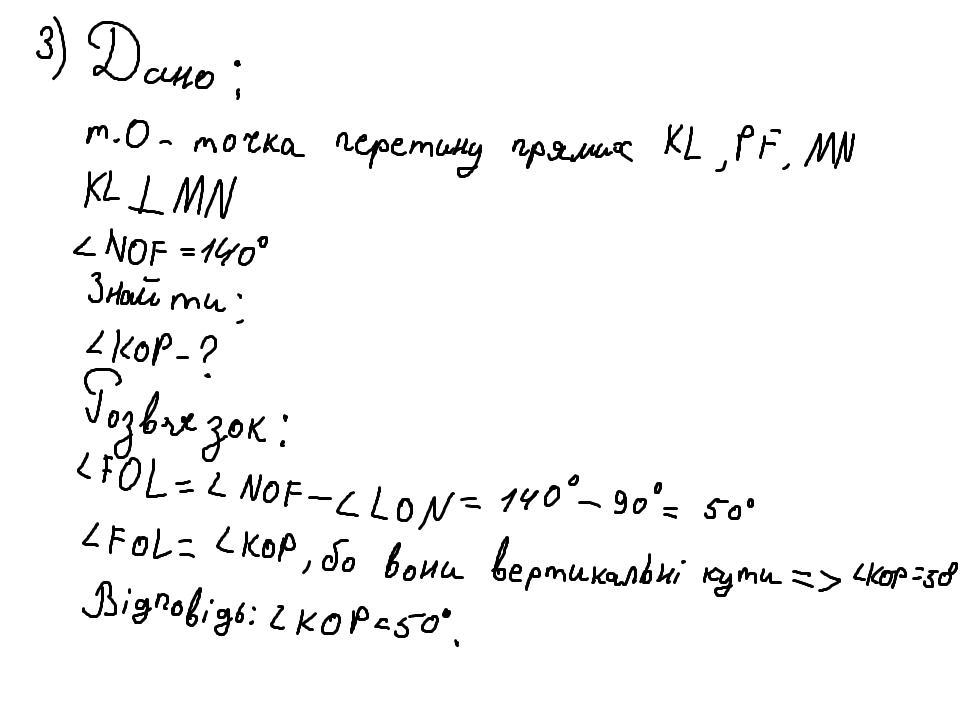 3) Дано:
т.О - точка перетину прямих KL, PF, MN
KL⊥MN
∠NOF=140°
Знайти:
∠KOP-?
Розв'язок:
∠FOL=∠NOF-∠LON=140°-90°=50°
∠FOL=∠KOP, бо вони вертикальні кути => ∠KOP=50
Відповідь: ∠KOP=50°.